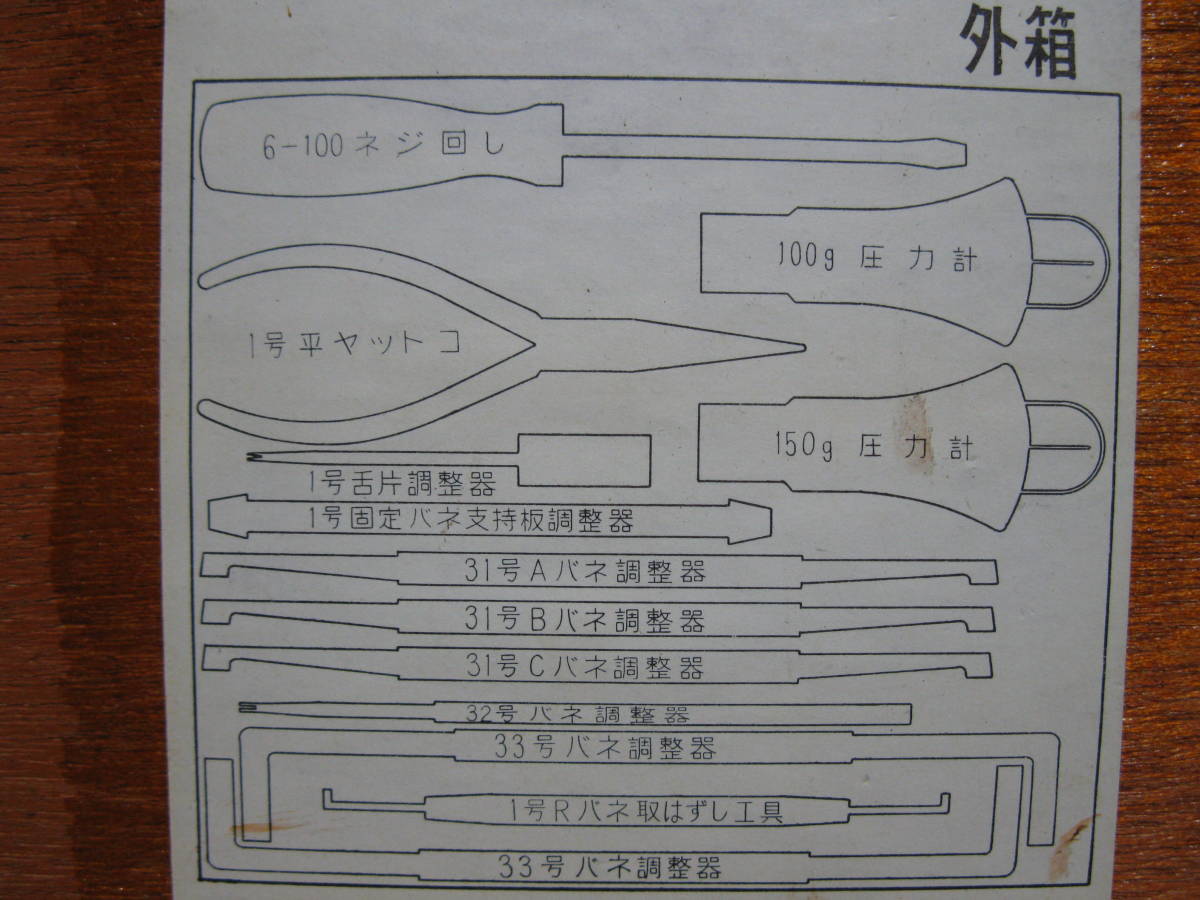 外箱
6-100ネジ回し
100g 圧力計
1号平ヤットコ
150g 圧力計
1号舌片調整器
1号固定バネ支持板調整器
31号Aバネ調整器
31号Bバネ調整器
31号Cバネ調整器
32号バネ調整器
33号バネ調整器
1号Rバネ取はずし工具
33号バネ調整器